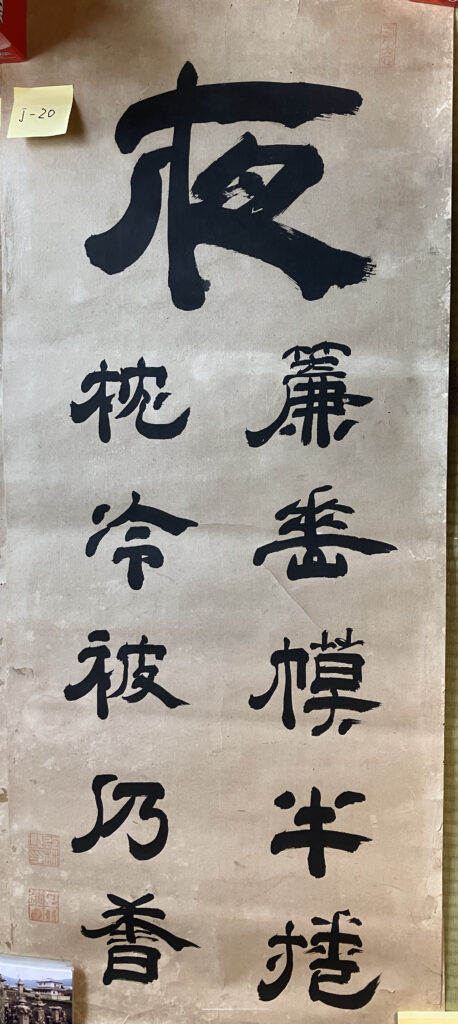 j-20
夜
簾垂幙半捲
枕冷被仍香